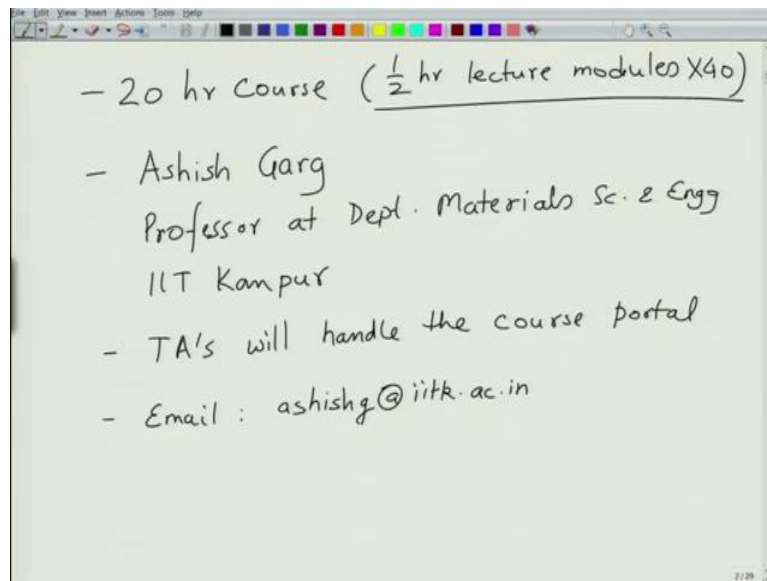 File Edit View Insert Actions Tools Help
- 20 hr Course (1/2 hr lecture modules X40)
- Ashish Garg
Professor at Dept. Materials Sc. & Engg
IIT Kanpur
- TA's will handle the course portal
- Email : ashishg@iitk.ac.in
2/29